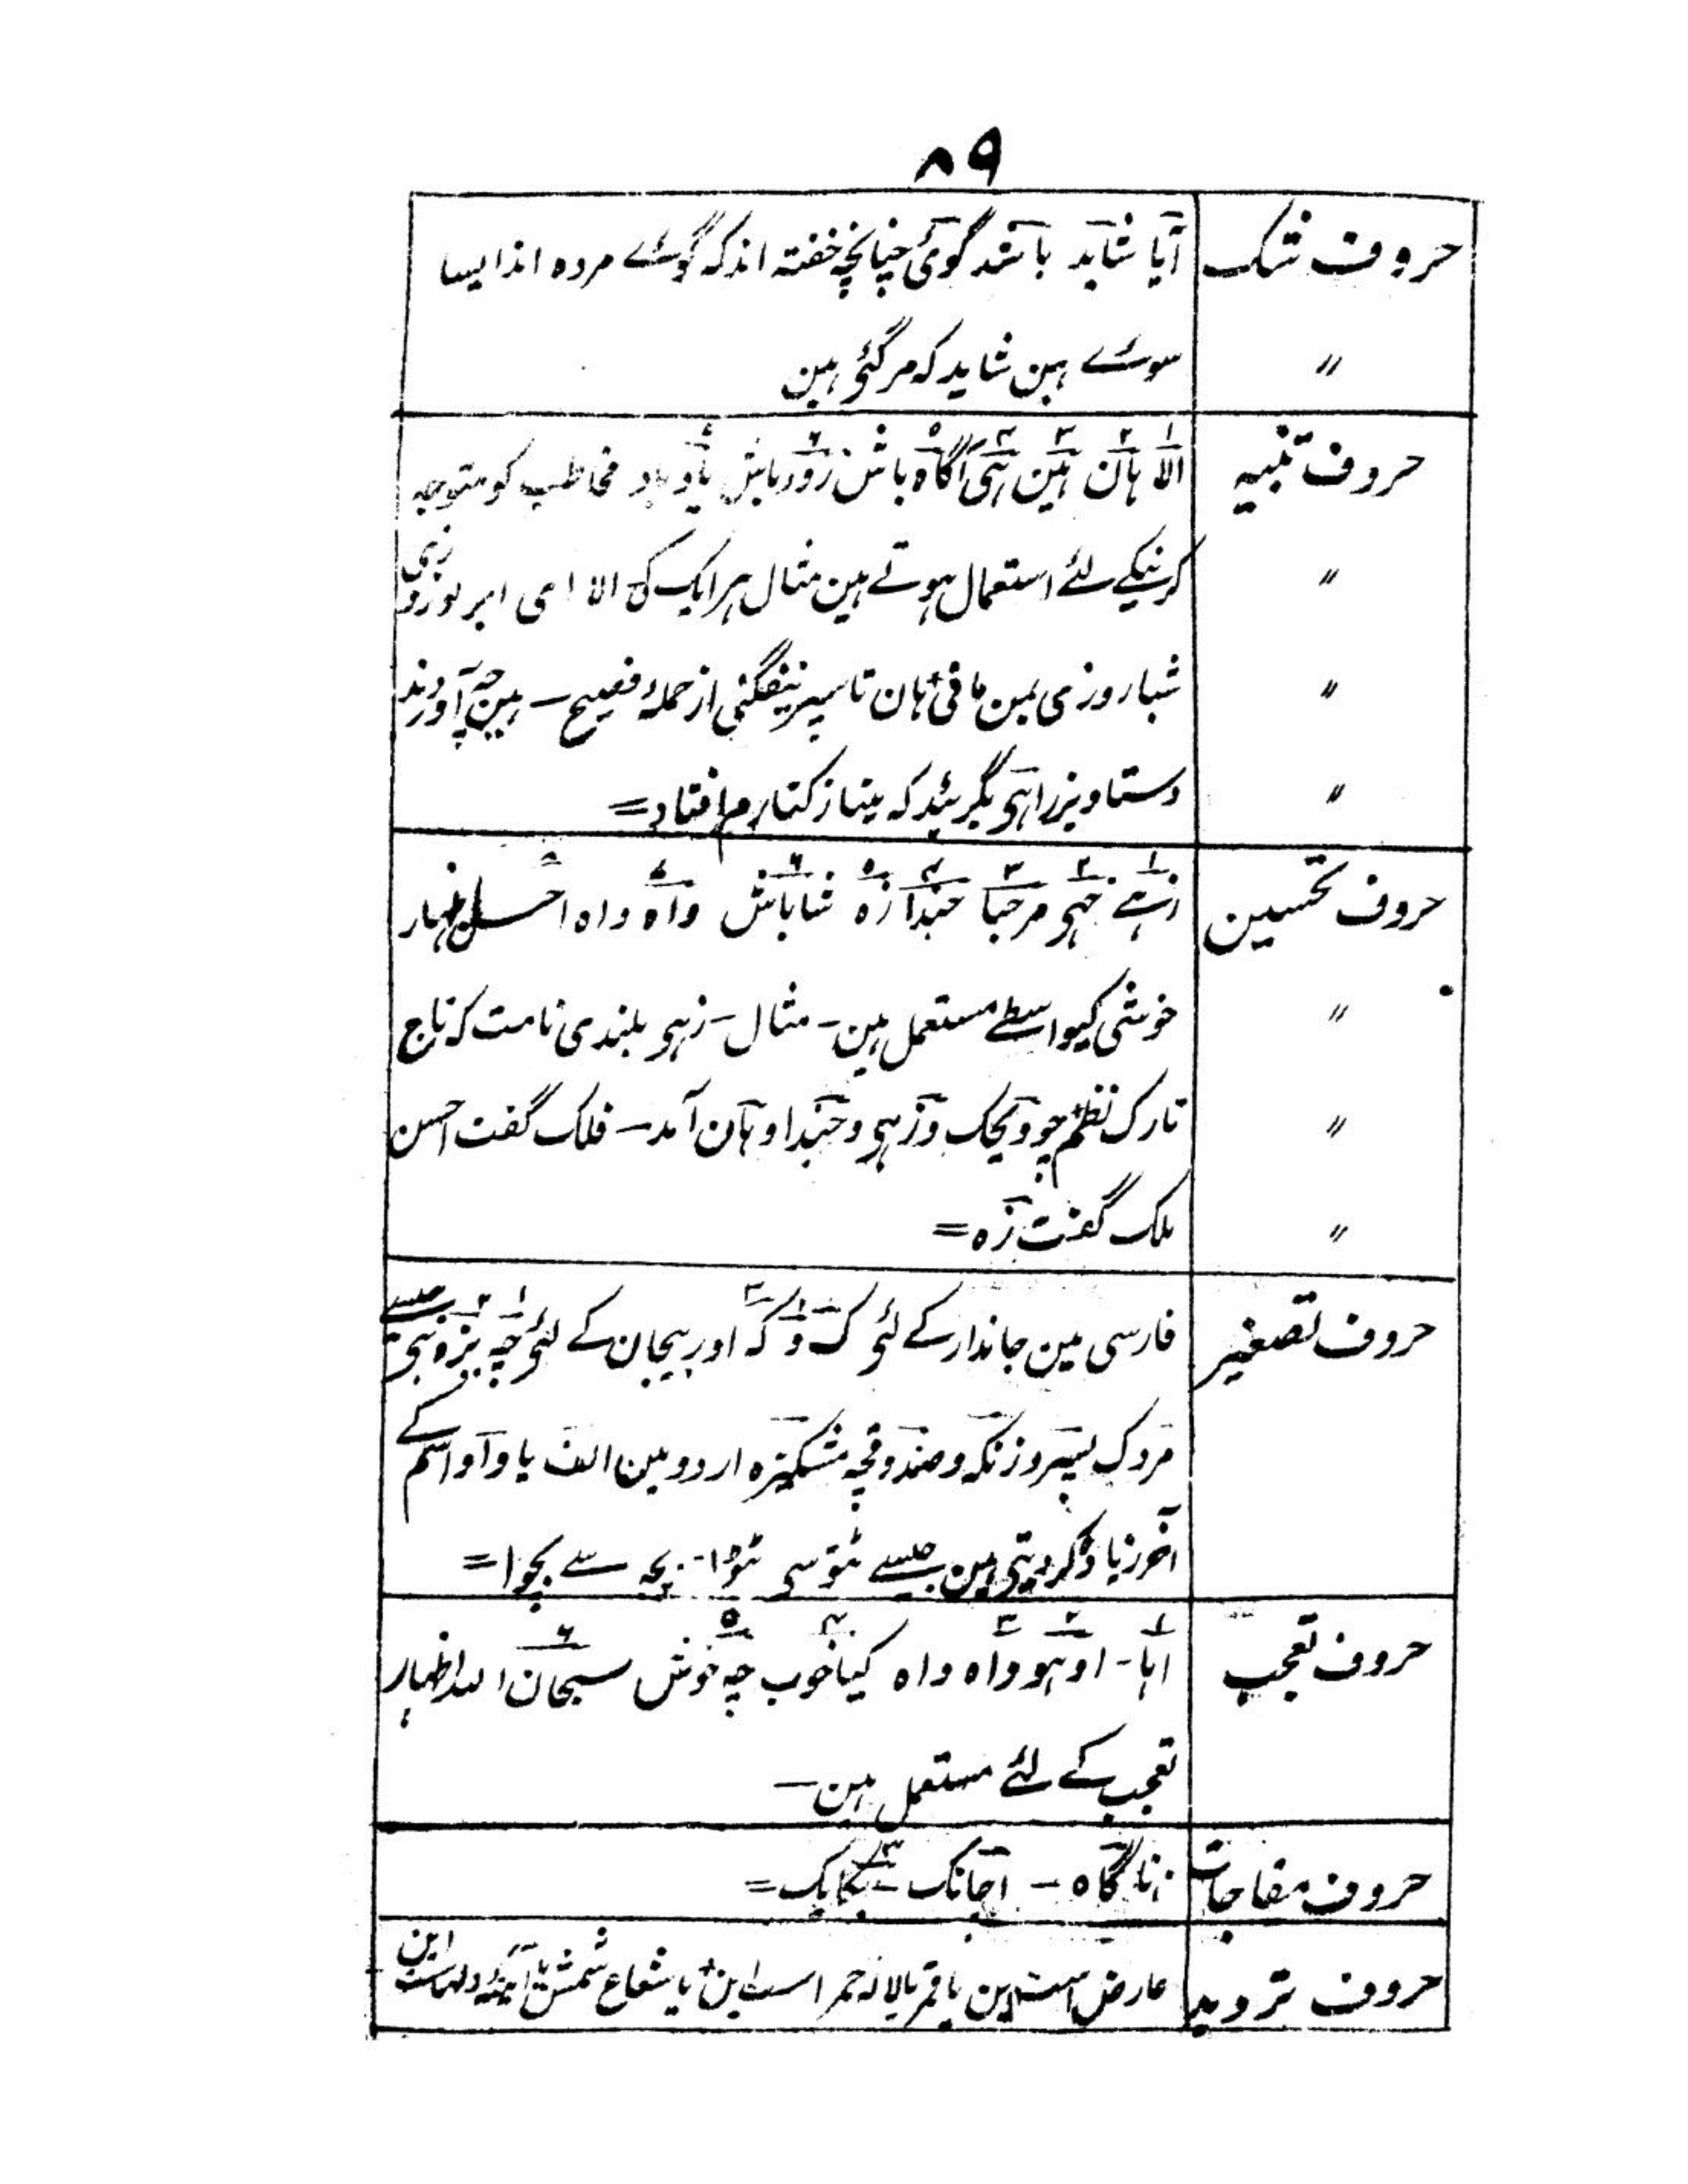 ۸۹
حروف شک آیا شاید باشد گوئی چنانچہ خفتہ اند کہ گوئے مردہ اند ایسا
〃 سوئے ہین شاید کہ مرگئی ہین
حروف تنبیہ الا ہان ہین ہی آگاہ باش زود باش یاد باد مخاطب کو متوجہ
〃 کرنیکے لئے استعمال ہوتے ہین مثال ہر ایک کی الا ای ابر نوروزی
〃 شباروزی بمن مافی ہان تا سپر نیفگنی از حملۂ فصیح – ہین چہ آوردند
〃 دستاویز را ہی بگیرید کہ مینا از کنارم افتاد =
حروف تحسین زہے خہی مرحبا حبذا زہ شاباش واہ واہ احسن اظہار
〃 خوشی کیواسطے مستعمل ہین – مثال – زہی بلندی نامت کہ تاج
〃 تارک نظم چو ویحک و زہی و حبذا و ہان آمد – فلک گفت احسن
〃 ملک گفت زہ =
حروف تصغیر فارسی مین جاندار کے لئی ک و کہ اور بیجان کے لئی چہ یزہ جیسے
مردک پسرو زنکہ و صندوقچہ مشکیزہ اردو مین الف یا واو اسم کے
آخر زیادہ کردیتی ہین جیسے ٹٹو سی ٹٹوا - بچہ سے بچوا =
حروف تعجب اہا - اوہو واہ واہ کیا خوب چہ خوش سبحان اللہ اظہار
تعجب کے لئے مستعمل ہین –
حروف مفاجات ناگاہ – اچانک – یکایک =
حروف تردید عارض است این یا قمر یا لالہ حمر است این یا شعاع شمس یا آئینہ دلہاست این